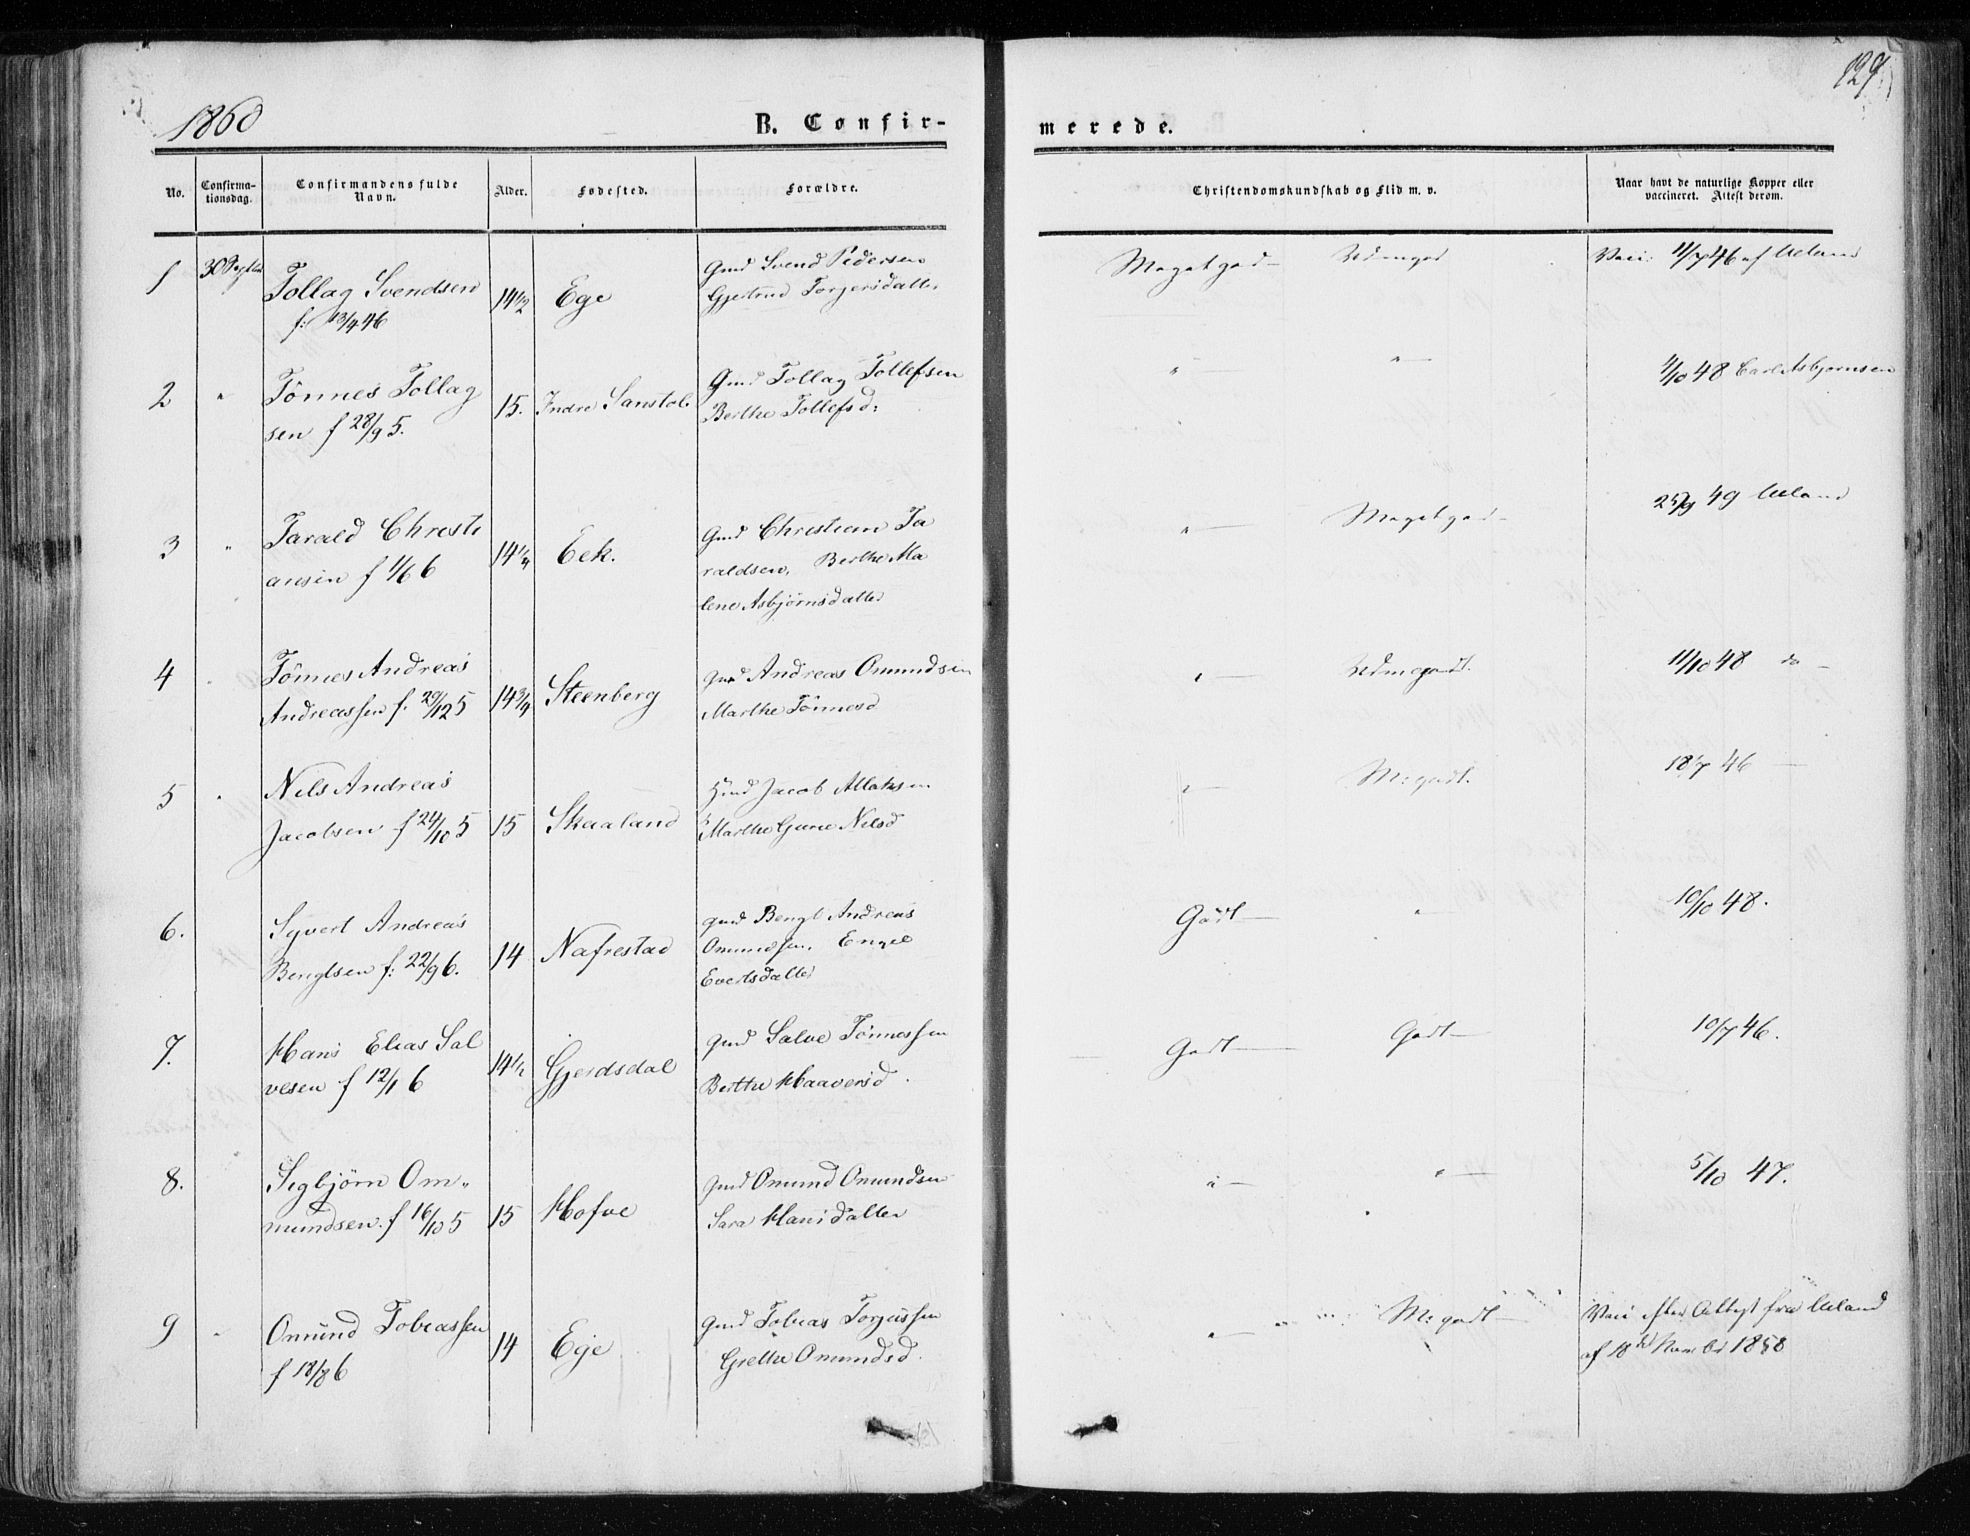 1860
129
B. Confir-
merede.
No.
Confirma-
tionsdag.
Confirmandens fulde
Navn.
Alder.
Fødested.
Forældre.
Christendomskundskab og Flid m. v.
Naar havt de naturlige Kopper eller
vaccineret. Attest derom.
1 30 Septbr Tollag Svendsen
f: 13/4 46
14 1/2 Ege
Gmd Svend Pedersen
Gjertrud Torgersdatter
Megetgod Udmget
Vacc: 11/7 46 af Ueland
2 " Tönnes Tollag
sen f 28/9 5.
15. Indre Sanstøl
Gmd Tollag Tollefsen
Berthe Tollefsd:
" "
4/10 48 Carl Asbjørnsen
3 " Tarald Christi
ansen f 1/6 6
14 1/4 Eek.
Gmd Christian Ta
raldsen, Berthe Ma
lene Asbjörnsdatter
" Megetgod
25/9 49 Ueland
4 " Tönnes Andreas
Andreassen f. 29/12 5
14 3/4 Steenberg
Gmd Andreas Omundsen
Marthe Tönnesd
" Udmgodt.
11/10 48 do
5 " Nils Andreas
Jacobsen f 24/10 5
15 Skaaland
Hmd Jacob Atlaksen
Marthe Gune Nilsd
" M: godt.
18/7 46
6. Syvert Andreas
Bengtsen f: 22/9 6.
14 Nafrestad
Gmd Bengt Andreas
Omundsen, Engel
Evertsdatter
Godt "
10/10 48.
7. Hans Elias Sal
vesen f 12/1 6
14 1/2 Gjerdsdal
Gmd Salve Tönnessen
Berthe Haaversd.
Godt Godt
10/7 46.
8. Sigbjörn Om"
mundsen. f 16/10 5
15 Hofve
Gmd Omund Omundsen
Sara Hansdatter
" "
5/10 47.
9 " Omund Tobiassen
f 18/8 6
14 Ege
Gmd Tobias Torjussen
Grethe Omundsd.
" M: godt
Vacc efter Attest fra Ueland
af 18de 1858